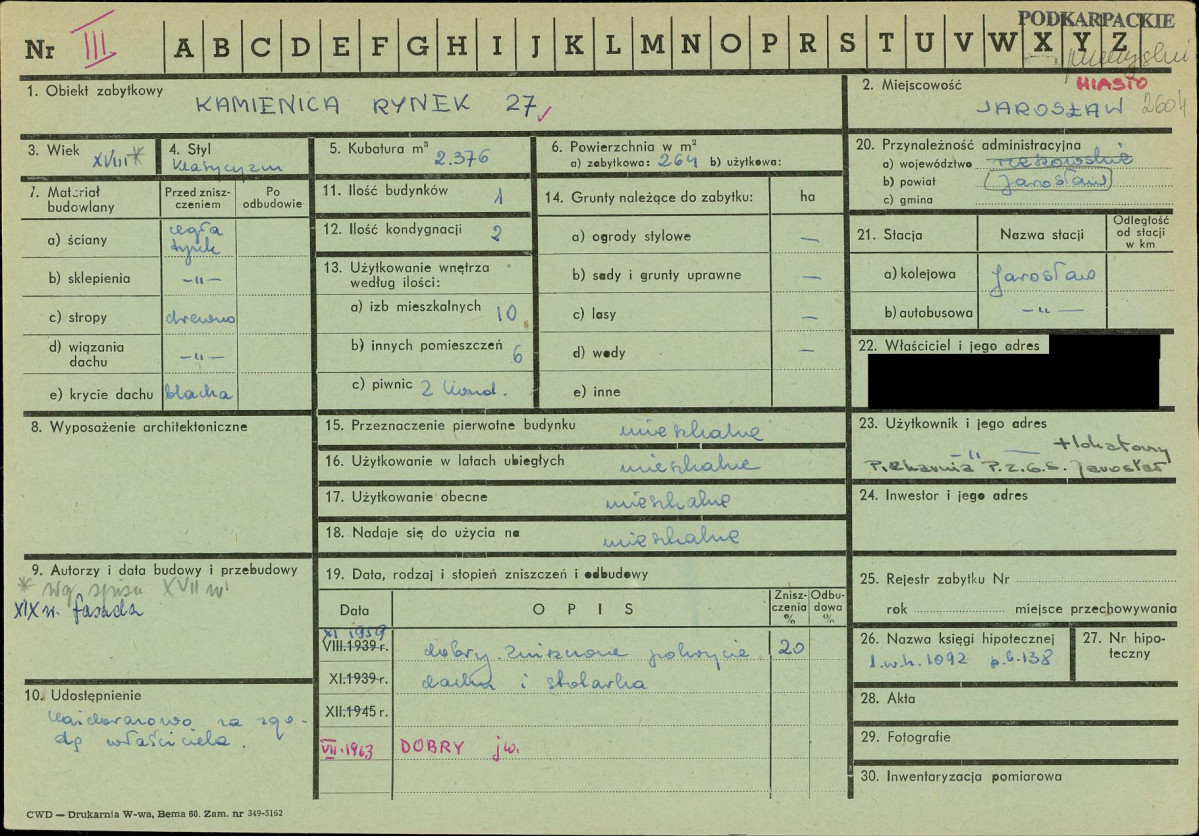 PODKARPACKIE
Nr III A B C D E F G H I J K L M N O P R S T U V W X Y Z
1. Obiekt zabytkowy KAMIENICA RYNEK 27
2. Miejscowość MIASTO
JAROSŁAW 2604
3. Wiek XVIII*
4. Styl
klasycyzm
5. Kubatura m³ 2.376
6. Powierzchnia w m²
a) zabytkowa: 264 b) użytkowa:
7. Materiał budowlany
Przed zniszczeniem
Po odbudowie
a) ściany cegła
tynk
b) sklepienia —„—
c) stropy drewno
d) wiązania dachu —„—
e) krycie dachu blacha
8. Wyposażenie architektoniczne
9. Autorzy i data budowy i przebudowy
* wg spisu XVII w.
XIX w. fasada
10. Udostępnienie
każdorazowo za zgo-
dą właściciela.
11. Ilość budynków 1
12. Ilość kondygnacji 2
13. Użytkowanie wnętrza
według ilości:
a) izb mieszkalnych 10
b) innych pomieszczeń 6
c) piwnic 2 kond.
14. Grunty należące do zabytku: ha
a) ogrody stylowe —
b) sady i grunty uprawne —
c) lasy —
d) wody —
e) inne
15. Przeznaczenie pierwotne budynku mieszkalne
16. Użytkowanie w latach ubiegłych mieszkalne
17. Użytkowanie obecne mieszkalne
18. Nadaje się do użycia na mieszkalne
19. Data, rodzaj i stopień zniszczeń i odbudowy
Data OPIS Zniszczenia % Odbudowa %
XI 1959
VIII.1939 r. dobry. Zniszczone pokrycie 20
XI.1939 r. dachu i stolarka
XII.1945 r.
VII.1963 DOBRY jw.
20. Przynależność administracyjna
a) województwo rzeszowskie
b) powiat Jarosław
c) gmina
21. Stacja Nazwa stacji Odległość od stacji w km
a) kolejowa Jarosław
b) autobusowa —„—
22. Właściciel i jego adres
23. Użytkownik i jego adres
—„— + lokatorzy
Piekarnia P.Z.G.S. Jarosław
24. Inwestor i jego adres
25. Rejestr zabytku Nr
rok miejsce przechowywania
26. Nazwa księgi hipotecznej
l.w.h. 1092 p.b. 138
27. Nr hipoteczny
28. Akta
29. Fotografie
30. Inwentaryzacja pomiarowa
CWD — Drukarnia W-wa, Bema 60. Zam. nr 349-5162